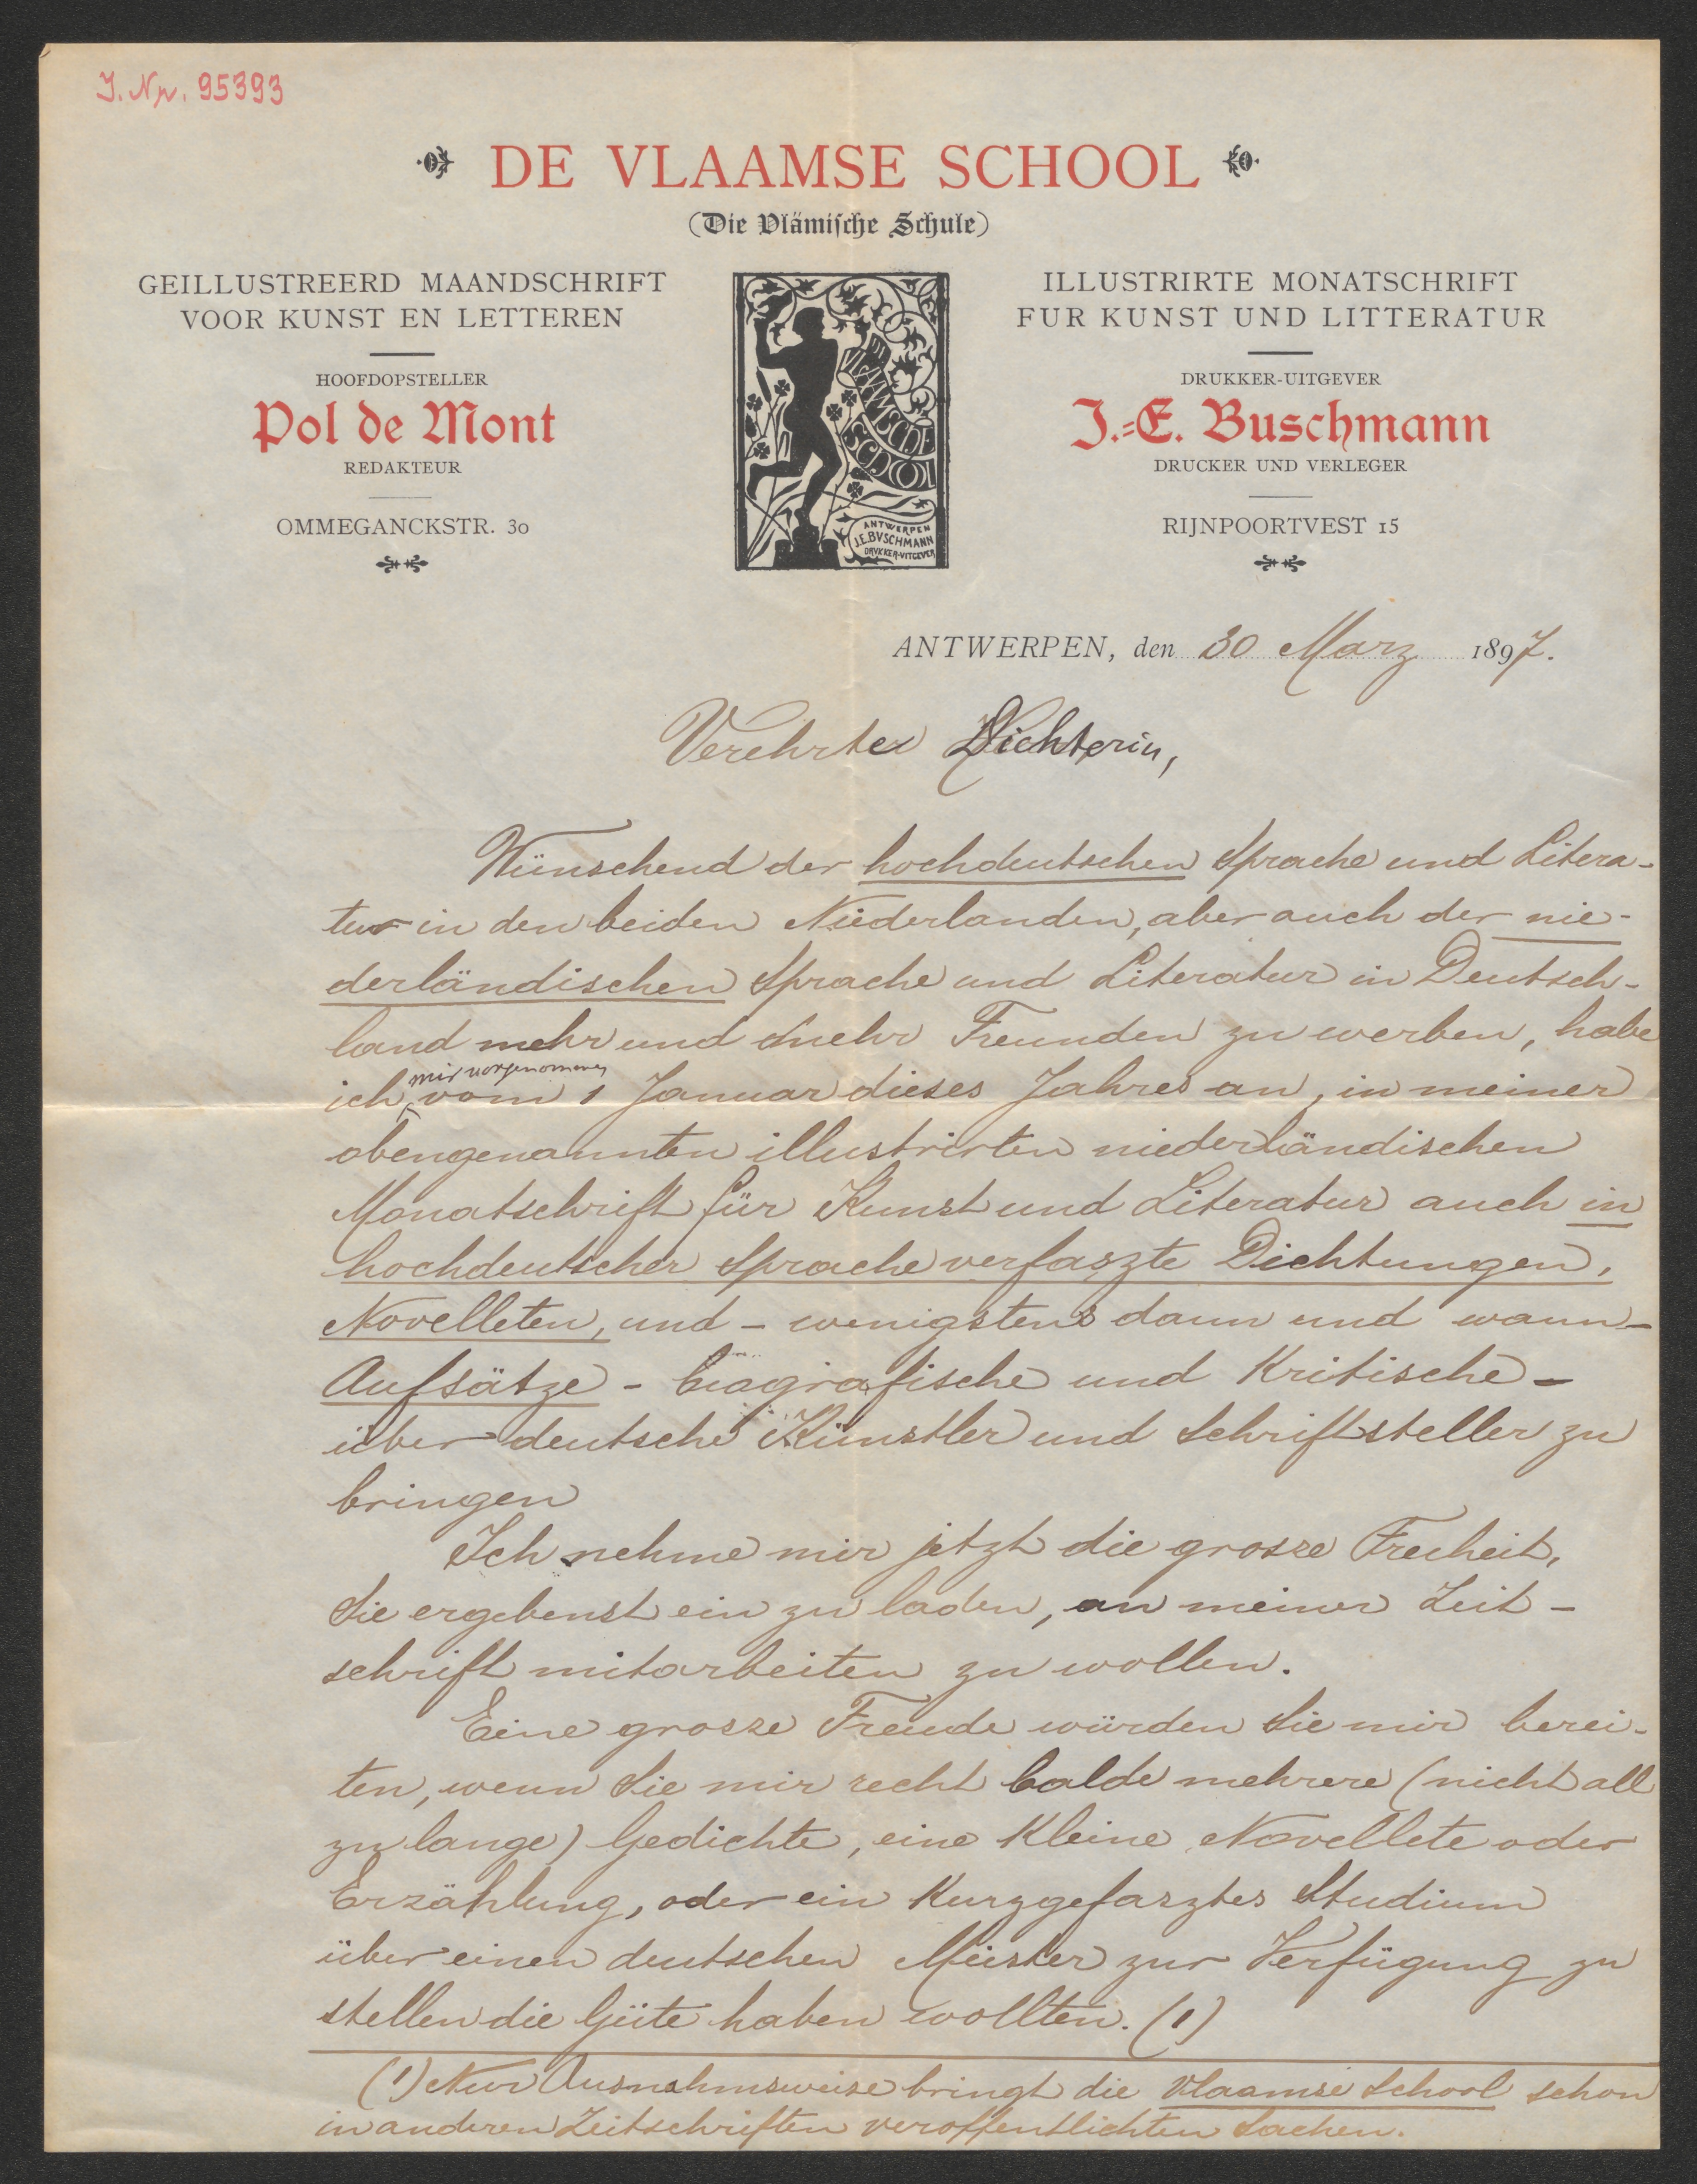 J. Nr. 95393
DE VLAAMSE SCHOOL
(Die Vlämische Schule)
GEILLUSTREERD MAANDSCHRIFT
VOOR KUNST EN LETTEREN
HOOFDOPSTELLER
Pol de Mont
REDAKTEUR
OMMEGANCKSTR. 30
VLAAMSCHE
SCHOOL
ANTWERPEN
J.E.BVSCHMANN
DRVKKER-VITGEVER
ILLUSTRIRTE MONATSCHRIFT
FUR KUNST UND LITTERATUR
DRUKKER-UITGEVER
J.-E. Buschmann
DRUCKER UND VERLEGER
RIJNPOORTVEST 15
ANTWERPEN, den 30 Marz 1897.
Verehrte Dichterin,
Wünschend der hochdeutschen Sprache und Litera-
tur in den beiden Niederlanden, aber auch der nie-
derländischen Sprache und Literatur in Deutsch-
land mehr und mehr Freunden zu werben, habe
ich mir vorgenomen vom 1 Januar dieses Jahres an, in meiner
obengenannten illustrirten niederländischen
Monatschrift für Kunst und Literatur auch in
hochdeutscher Sprache verfaszte Dichtungen,
Novelleten, und - wenigstens dann und wann -
Aufsätze - biografische und Kritische -
über deutsche Künstler und Schriftsteller zu
bringen
Ich nehme mir jetzt die grosse Freiheit,
Sie ergebenst ein zu laden, an meiner Zeit-
schrift mitarbeiten zu wollen.
Eine grosse Freude würden Sie mir berei-
ten, wenn Sie mir recht balde mehrere (nicht all
zu lange) Gedichte, eine Kleine Novellete oder
Erzählung, oder ein Kurzgefasztes Studium
über einen deutschen Meister zur Verfügung zu
stellen die Güte haben wollten. (1)
(1) Nur Ausnahmsweise bringt die Vlaamse School schon
in anderen Zeitschriften veroffentlichten Sachen.